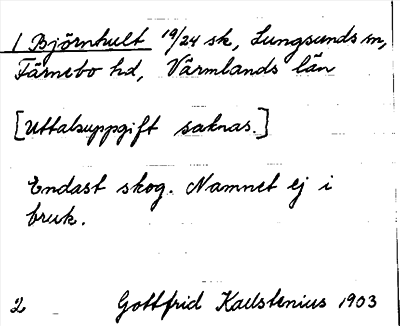 1 Björnhult 19/24 sk, Lungsunds sn,
Färnebo hd, Värmlands län
[Uttalsuppgift saknas.]
Endast skog. Namnet ej i
bruk.
2 Gottfrid Kallstenius 1903